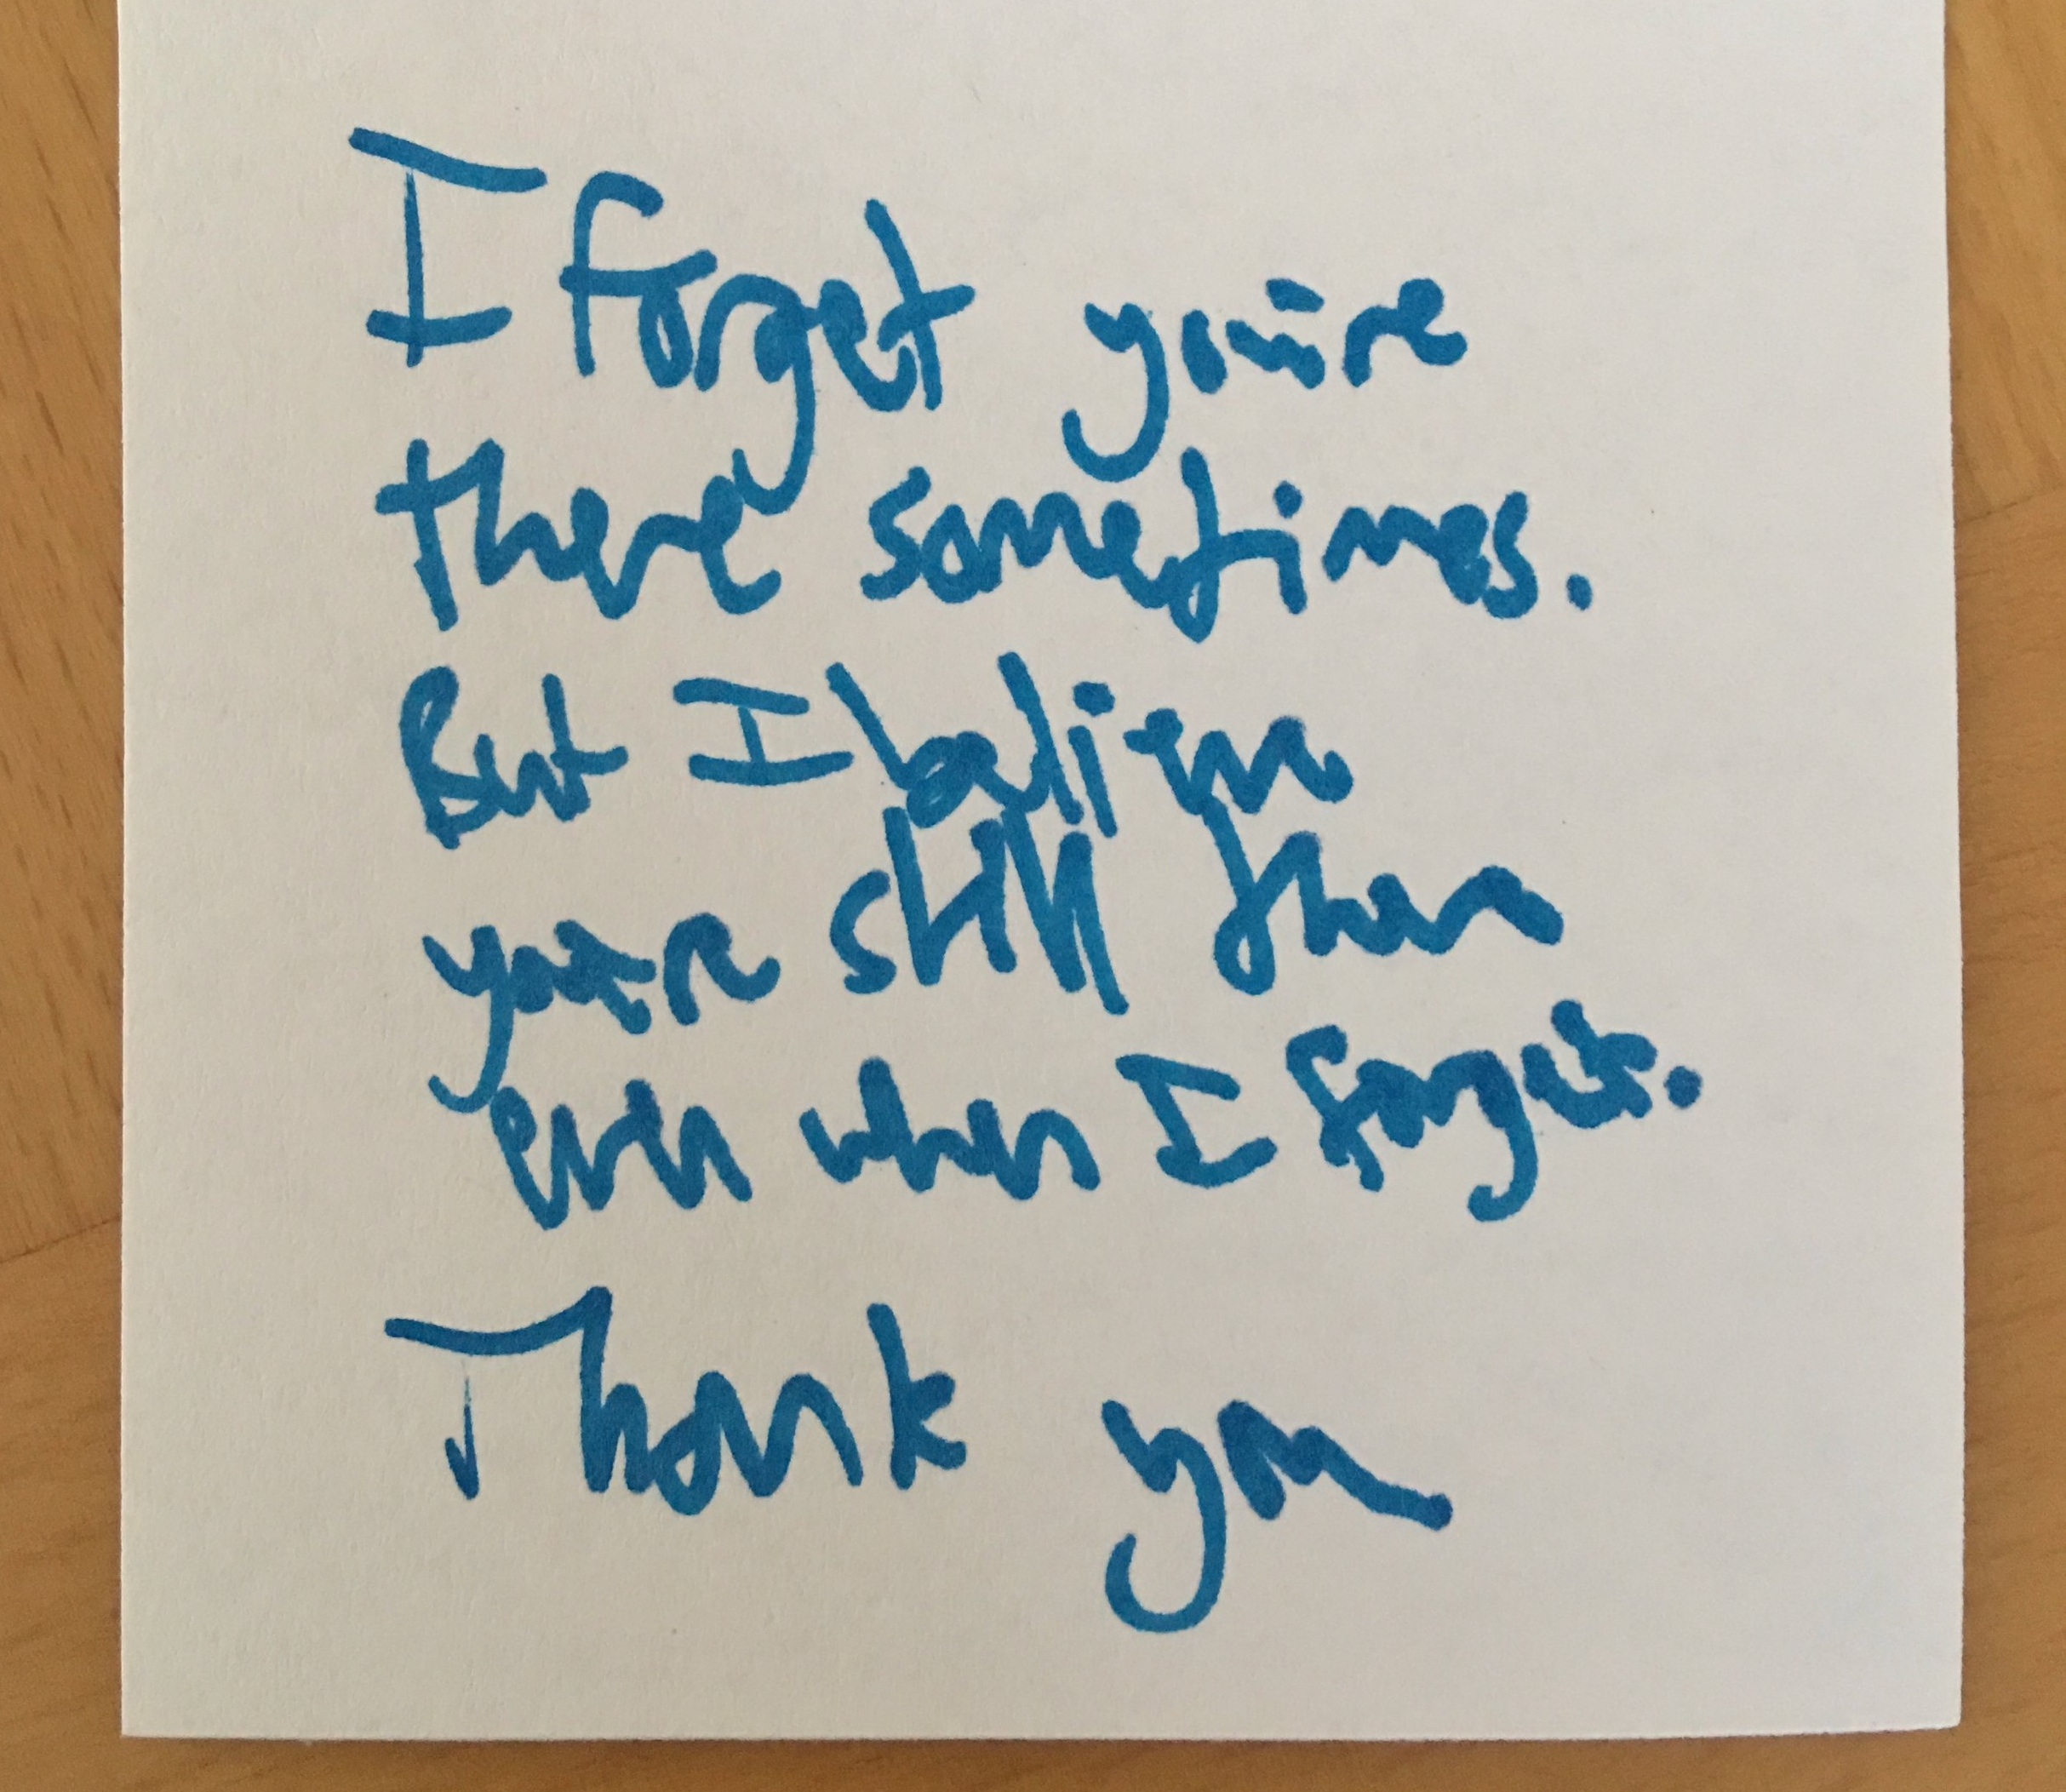 I forget you're
there sometimes.
But I believe
you're still there
even when I forget.
Thank you